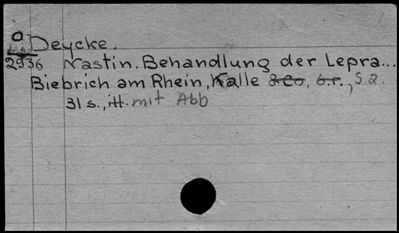 Deycke.
2936 Nastin. Behandlung der Lepra...
Biebrich am Rhein, Kalle & Co, b.r., S.a.
31 s., itt. mit Abb